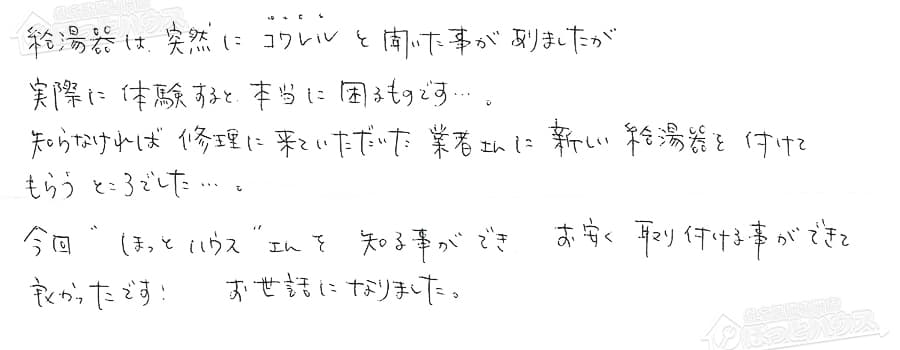 給湯器は、突然に コワレル と聞いた事がありましたが
実際に体験すると、本当に困るものです…。
知らなければ修理に来ていただいた業者さんに新しい給湯器を付けて
もらうところでした…。
今回“ほっとハウス”さんを知る事ができ お安く取り付ける事ができて
良かったです！ お世話になりました。
ほっとハウス